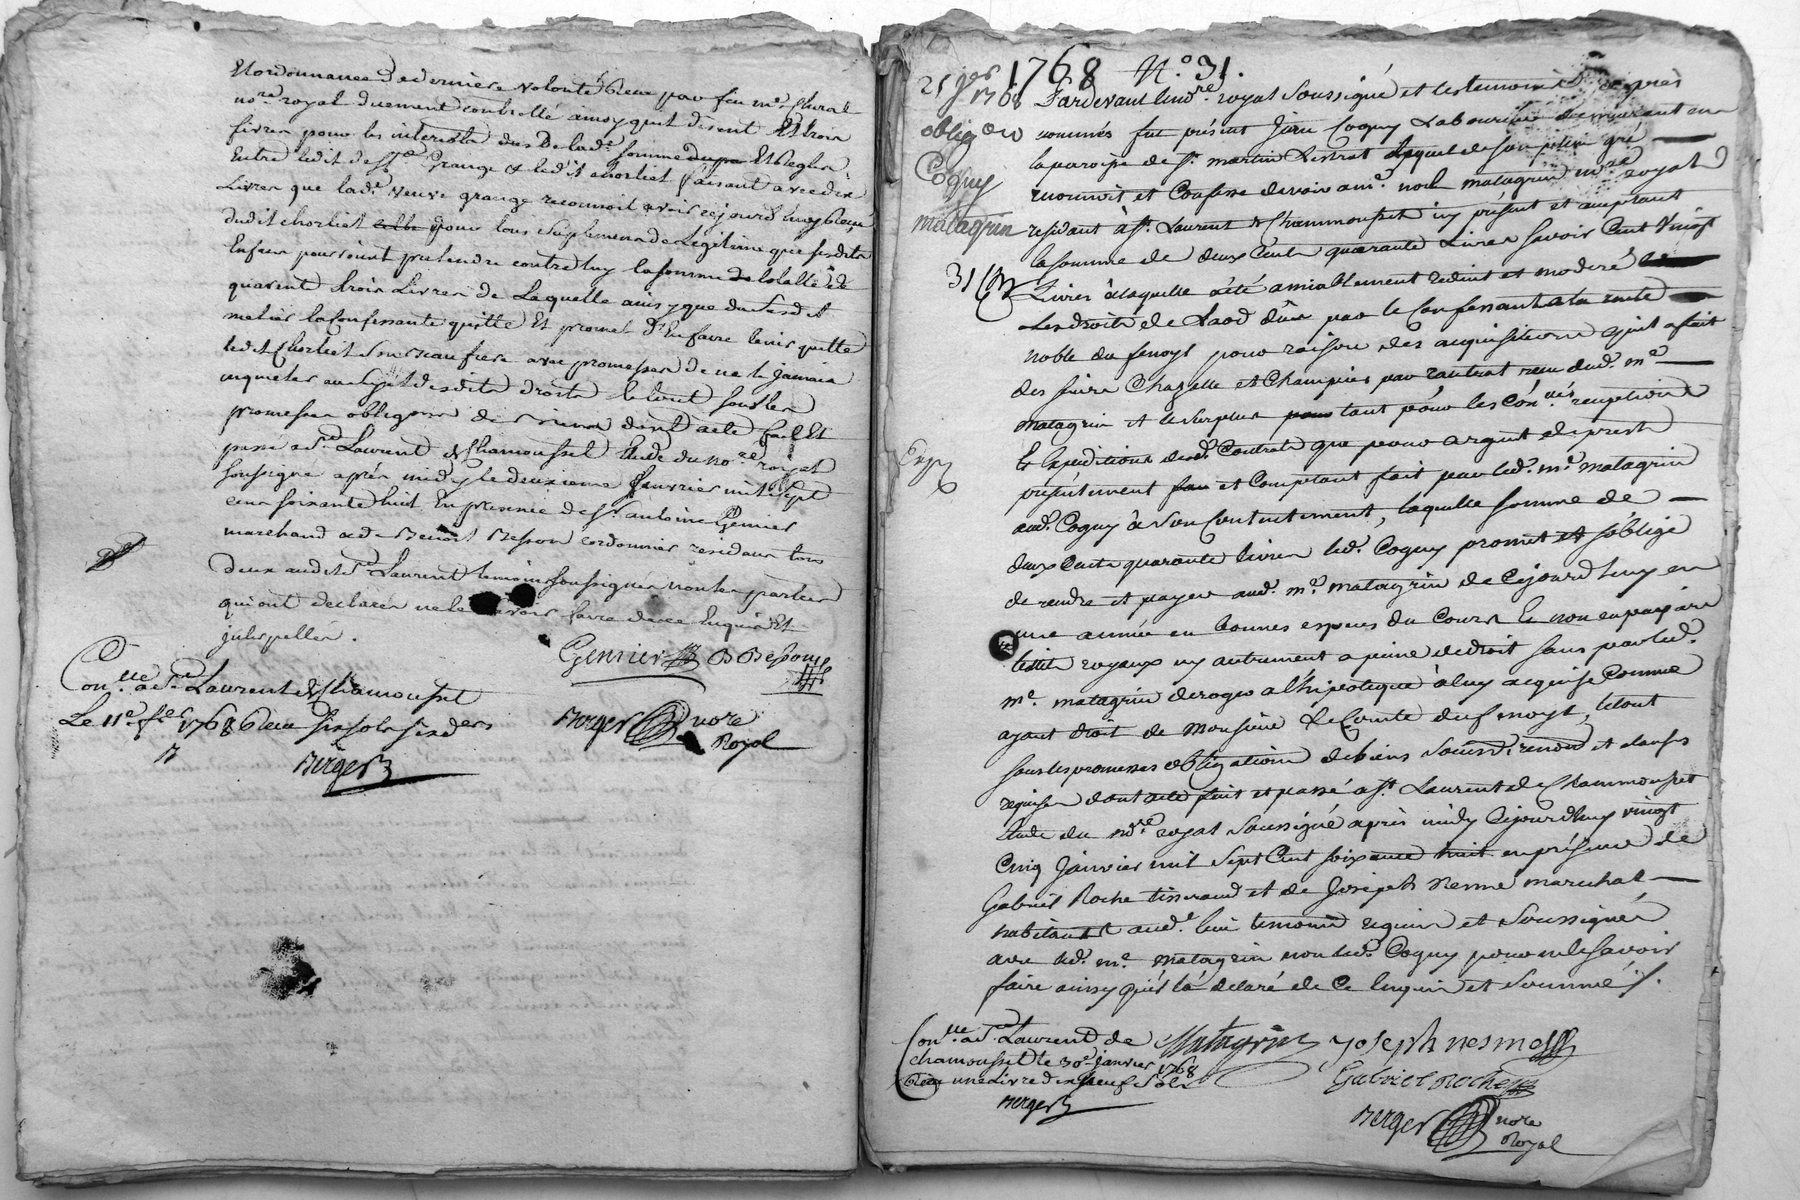 Et ordonnance de derniere volonté Reçu par feu me. Chirat
no.re royal duement controllé ainsy quil disent Et trois
livres pour les interrests dus De lad.e somme Et Reglés
Entre ledit de Sr. Grange & led.it chorliet faisant avec dix
Livres que lad.e veuve grange reconnoit avoir cejourd'huy Reçu
dudit chorliet pour tous suplement de Legitime que sesdits
Enfans pourroient pretendre contre luy la somme totalle de
quarente trois Livres de Laquelle ainsy que du susdit
la Confessante quitte Et promet d'En faire tenir quitte
ledit Chorliet Son beaufrere avec promesse de ne le jamais
inquieter au sujet desdits droits le tout sous les
promesses obligaons de biens dont acte fait Et
passé a St. Laurent de Chamousset Etude du no.re royal
soussigné après midy le deuxieme fevrier mil sept
cens soixante huit En presence de Sr. antoine Genier
marchand et de Benoit Besson cordonnier residans tous
deux audit St. Laurent temoins soussignés non les parties
qui ont declarés ne le savoir faire de ce Enquis Et
jnterpellés.
Genier B Besson
Con.lle a St. Laurent de Chamousset
Le 11e. fer. 1768 Reçu six sols six ders
Berger
Berger nore
Royal
1768 N.o 31.
25 jer
1768
oblig.on
Cogny
matagrin
31
Exp.
Pardevant le no.re royal soussigné et les temoins cy après
nommés fut présent Jean Cogny Laboureur demeurant en
la paroisse de St. martin Lestrat Lequel de son plein gré
reconnoit et Confesse devoir a me. noel matagrin no.re royal
residant à St. Laurent de Chammousset icy présent et acceptant
la somme de deux Cent quarante Livres savoir Cent vingt
Livres à laquelle a été amiablement reduit et moderé
Les droits de Laod dûs par le Confessant a la rente
noble du fenoyl pour raison des acquisitions qu'il a fait
des sieurs Chazelle et Champier par Contrat reçu dud. me.
matagrin et le surplus tant pour les Con.lles reception
Et Expeditions desd. Contrats que pour argent de prest
présentement et Comptant fait par led. me. matagrin
aud. Cogny à son Contentement, laquelle somme de
deux Cents quarante livres led. Cogny promet et s'oblige
de rendre et payer aud. me. matagrin de Cejourdhuy en
une année en bonnes especes du Cours Et non en papiers
billets royaux ny autrement a peine de droit sans par led.
me. matagrin deroger a l'hipoteque à luy acquise Comme
ayant droit de Monsieur Le Comte du fenoyl, le tout
sous les promesses obligations de biens soumis. renon. et clauses
requises dont acte fait et passé à St. Laurent de Chammousset
Etude du no.re royal soussigné après midy Cejourdhuy vingt
Cinq Janvier mil sept Cent soixante huit en présence de
Gabriel Roche tisserand et de Joseph Nesme marechal
habitants aud. lieu temoins requis et soussignés
avec led. me. matagrin non led. Cogny pour ne le savoir
faire ainsy qu'il l'a declaré de Ce Enquis et Sommé
Con.lle a St. Laurent de
chamousset le 30e janvier 1768
Reçu une Livre dix neuf sols
Berger
Matagrin Joseph nesme
Gabriel Roche
Berger nore
Royal